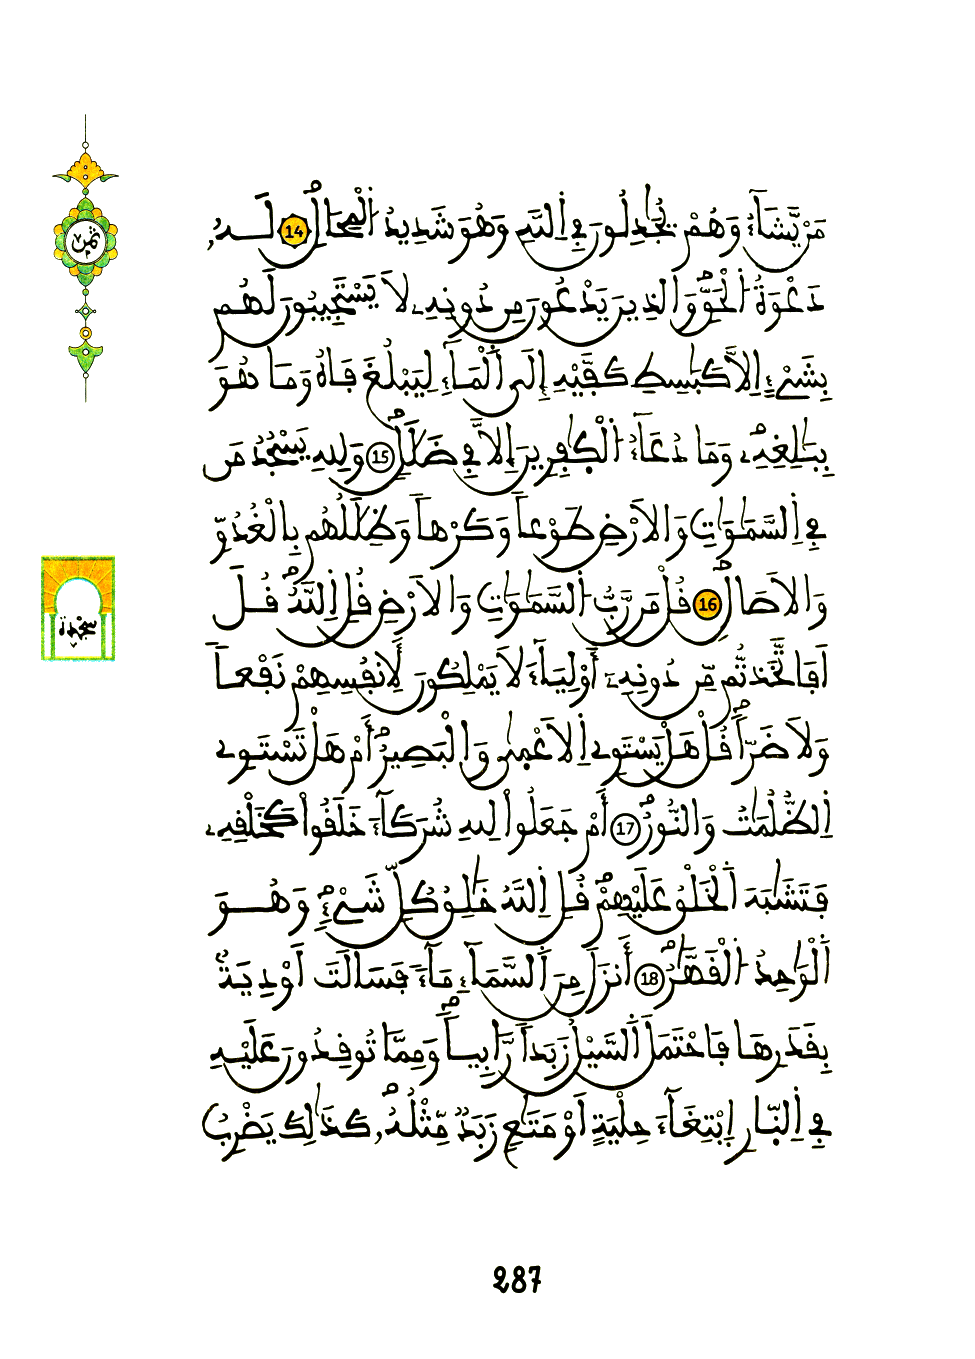 مَنْ يَّشَآءُ وَهُمْ يُجَٰدِلُونَ فِے اِ۬للَّهِ وَهُوَ شَدِيدُ اُ۬لْمِحَالِۖ 14 لَهُۥ
دَعْوَةُ اُ۬لْحَقِّۖ وَالذِينَ يَدْعُونَ مِن دُونِهِۦ لَا يَسْتَجِيبُونَ لَهُم
بِشَےْءٍ اِلَّا كَبَٰسِطِ كَفَّيْهِ إِلَي اَ۬لْمَآءِ لِيَبْلُغَ فَاهُ وَمَا هُوَ
بِبَٰلِغِهِۦۖ وَمَا دُعَآءُ اُ۬لْكٰ۪فِرِينَ إِلَّا فِے ضَلَٰلٖۖ 15 وَلِلهِ يَسْجُدُ مَن
فِے اِ۬لسَّمَٰوَٰتِ وَالَارْضِ طَوْعاٗ وَكَرْهاٗ وَظِلَٰلُهُم بِالْغُدُوِّ
وَالَاصَالِۖ 16 قُلْ مَن رَّبُّ اُ۬لسَّمَٰوَٰتِ وَالَارْضِ قُلِ اِ۬للَّهُۖ قُلَ
اَفَاتَّخَذتُّم مِّن دُونِهِۦٓ أَوْلِيَآءَ لَا يَمْلِكُونَ لِأَنفُسِهِمْ نَفْعاٗ
وَلَا ضَرّاٗۖ قُلْ هَلْ يَسْتَوِے اِ۬لَاعْم۪ىٰ وَالْبَصِيرُۖ أَمْ هَلْ تَسْتَوِے
اِ۬لظُّلُمَٰتُ وَالنُّورُۖ 17 أَمْ جَعَلُواْ لِلهِ شُرَكَآءَ خَلَقُواْ كَخَلْقِهِۦ
فَتَشَٰبَهَ اَ۬لْخَلْقُ عَلَيْهِمْۖ قُلِ اِ۬للَّهُ خَٰلِقُ كُلِّ شَےْءٖۖ وَهُوَ
اَ۬لْوَٰحِدُ اُ۬لْقَهَّٰرُۖ 18 أَنزَلَ مِنَ اَ۬لسَّمَآءِ مَآءٗ فَسَالَتَ اَوْدِيَةُۢ
بِقَدَرِهَا فَاحْتَمَلَ اَ۬لسَّيْلُ زَبَداٗ رَّابِياٗۖ وَمِمَّا تُوقِدُونَ عَلَيْهِ
فِے اِ۬لنّ۪ارِ اِ۪بْتِغَآءَ حِلْيَةٍ اَوْ مَتَٰعٖ زَبَدٞ مِّثْلُهُۥۖ كَذَٰلِكَ يَضْرِبُ
ثمن
سجدة
287